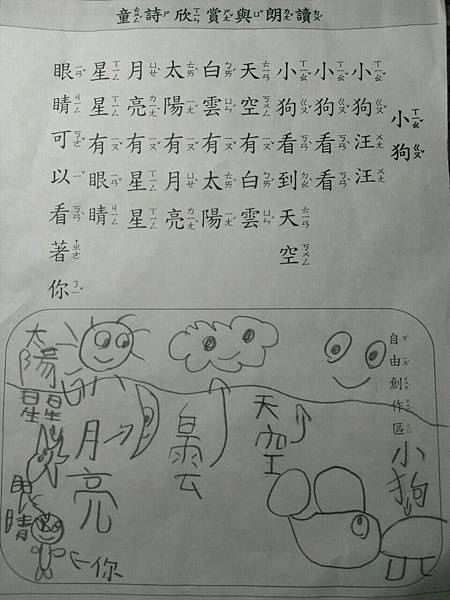 童詩欣賞與朗讀
小狗
小狗汪汪
小狗看看
小狗看到天空
天空有白雲
白雲有太陽
太陽有月亮
月亮有星星
星星有眼睛
眼睛可以看著你
自由創作區
小狗
天空
白雲
月亮
太陽
星星
眼睛
你